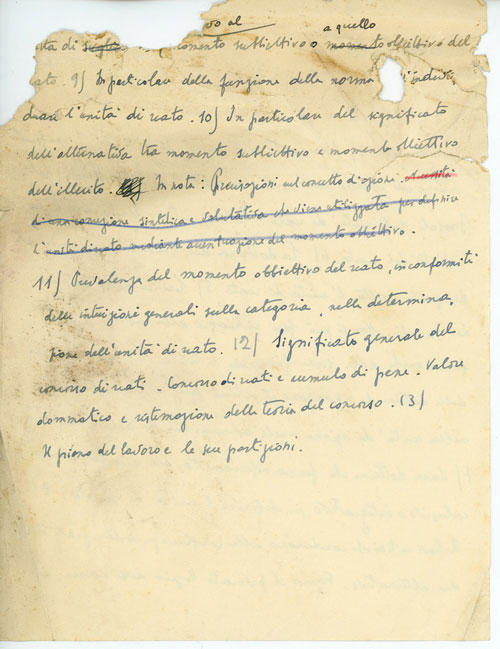 vo al a quello
momento subbiettivo o momento obbiettivo del
reato. 9) In particolare della funzione della norma
l'unità di reato. 10) In particolare del significato
dell'alternativa tra momento subbiettivo e momento obbiettivo
dell'illecito. In nota: Precisazioni sul concetto d'azione.
sintetica e valutativa che viene utilizzata per definire
l'unità di reato mediante accentuazione del momento obbiettivo.
11) Prevalenza del momento obbiettivo del reato, in conformità
delle intuizioni generali sulla categoria, nella determina
zione dell'unità di reato. 12) Significato generale del
concorso di reati. Concorso di reati e cumulo di pene. Valore
dommatico e sistemazione della teoria del concorso. 13)
Il piano del lavoro e le sue partizioni.